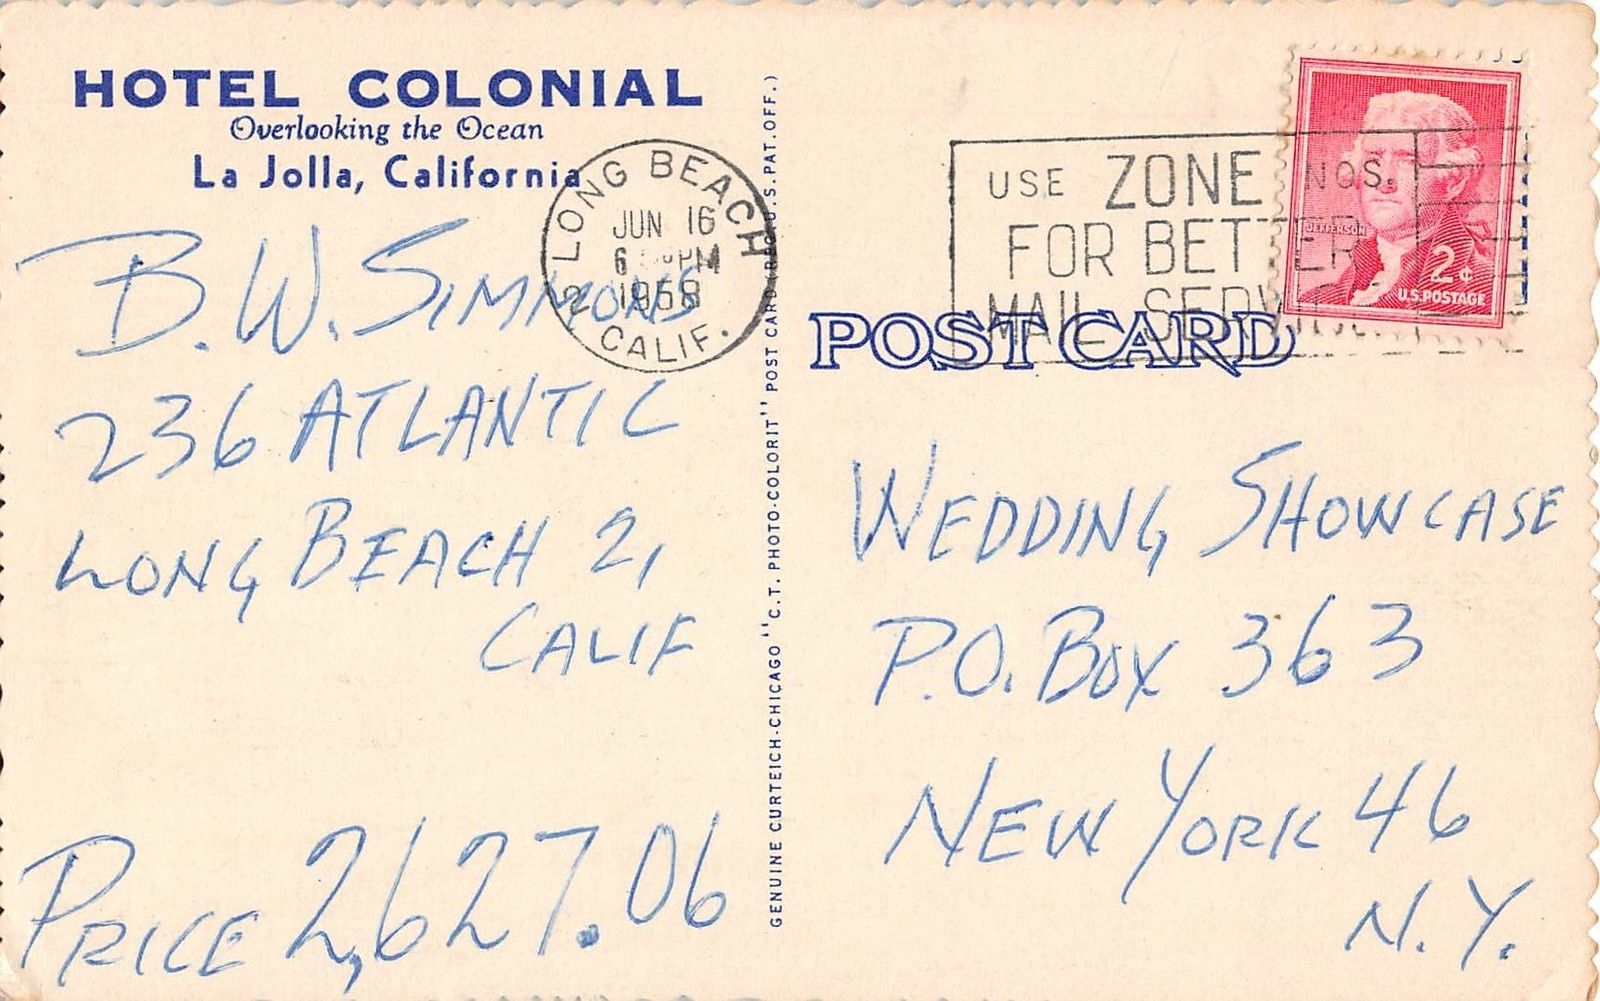 HOTEL COLONIAL
Overlooking the Ocean
La Jolla, California
B.W. SIMMONS
236 ATLANTIC
LONG BEACH 2,
CALIF
PRICE 2,627.06
LONG BEACH
JUN 16
PM
1958
CALIF.
GENUINE CURTEICH-CHICAGO "C.T. PHOTO-COLORIT" POST CARD U.S.PAT.OFF.)
USE ZONE NOS.
FOR BETTER
MAIL
JEFFERSON
2¢
U.S.POSTAGE
POST CARD
WEDDING SHOWCASE
P.O. BOX 363
NEW YORK 46
N.Y.